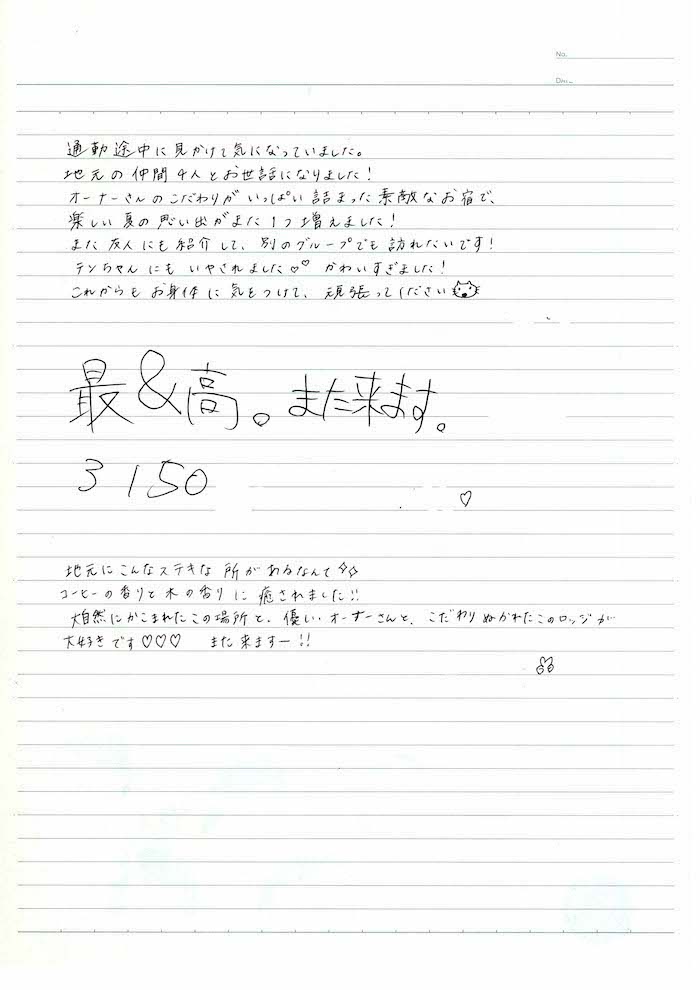 No.
Date
通勤途中に見かけて気になっていました。
地元の仲間4人とお世話になりました!
オーナーさんのこだわりがいっぱい詰まった素敵なお宿で、
楽しい夏の思い出がまた1つ増えました!
また友人にも紹介して、別のグループでも訪れたいです!
テンちゃんにもいやされました♡♡ かわいすぎました!
これからもお身体に気をつけて、頑張ってください
最&高。また来ます。
3150
♡
地元にこんなステキな所があるなんて
コーヒーの香りと木の香りに癒されました!!
大自然にかこまれたこの場所と、優しいオーナーさんと、こだわりぬかれたこのロッジが
大好きです♡♡♡ また来ますー!!